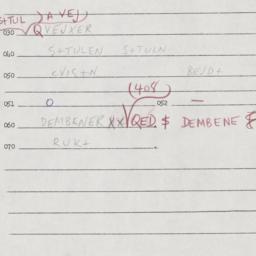 S+TUL A VEJ
030 QVEJXER
040 S+TULEN S+TULN
050 CVIS+N BEJD+
(408)
051 0 052 —
060 DEMBENER XX QED $ DEMBENE
070 RUK+